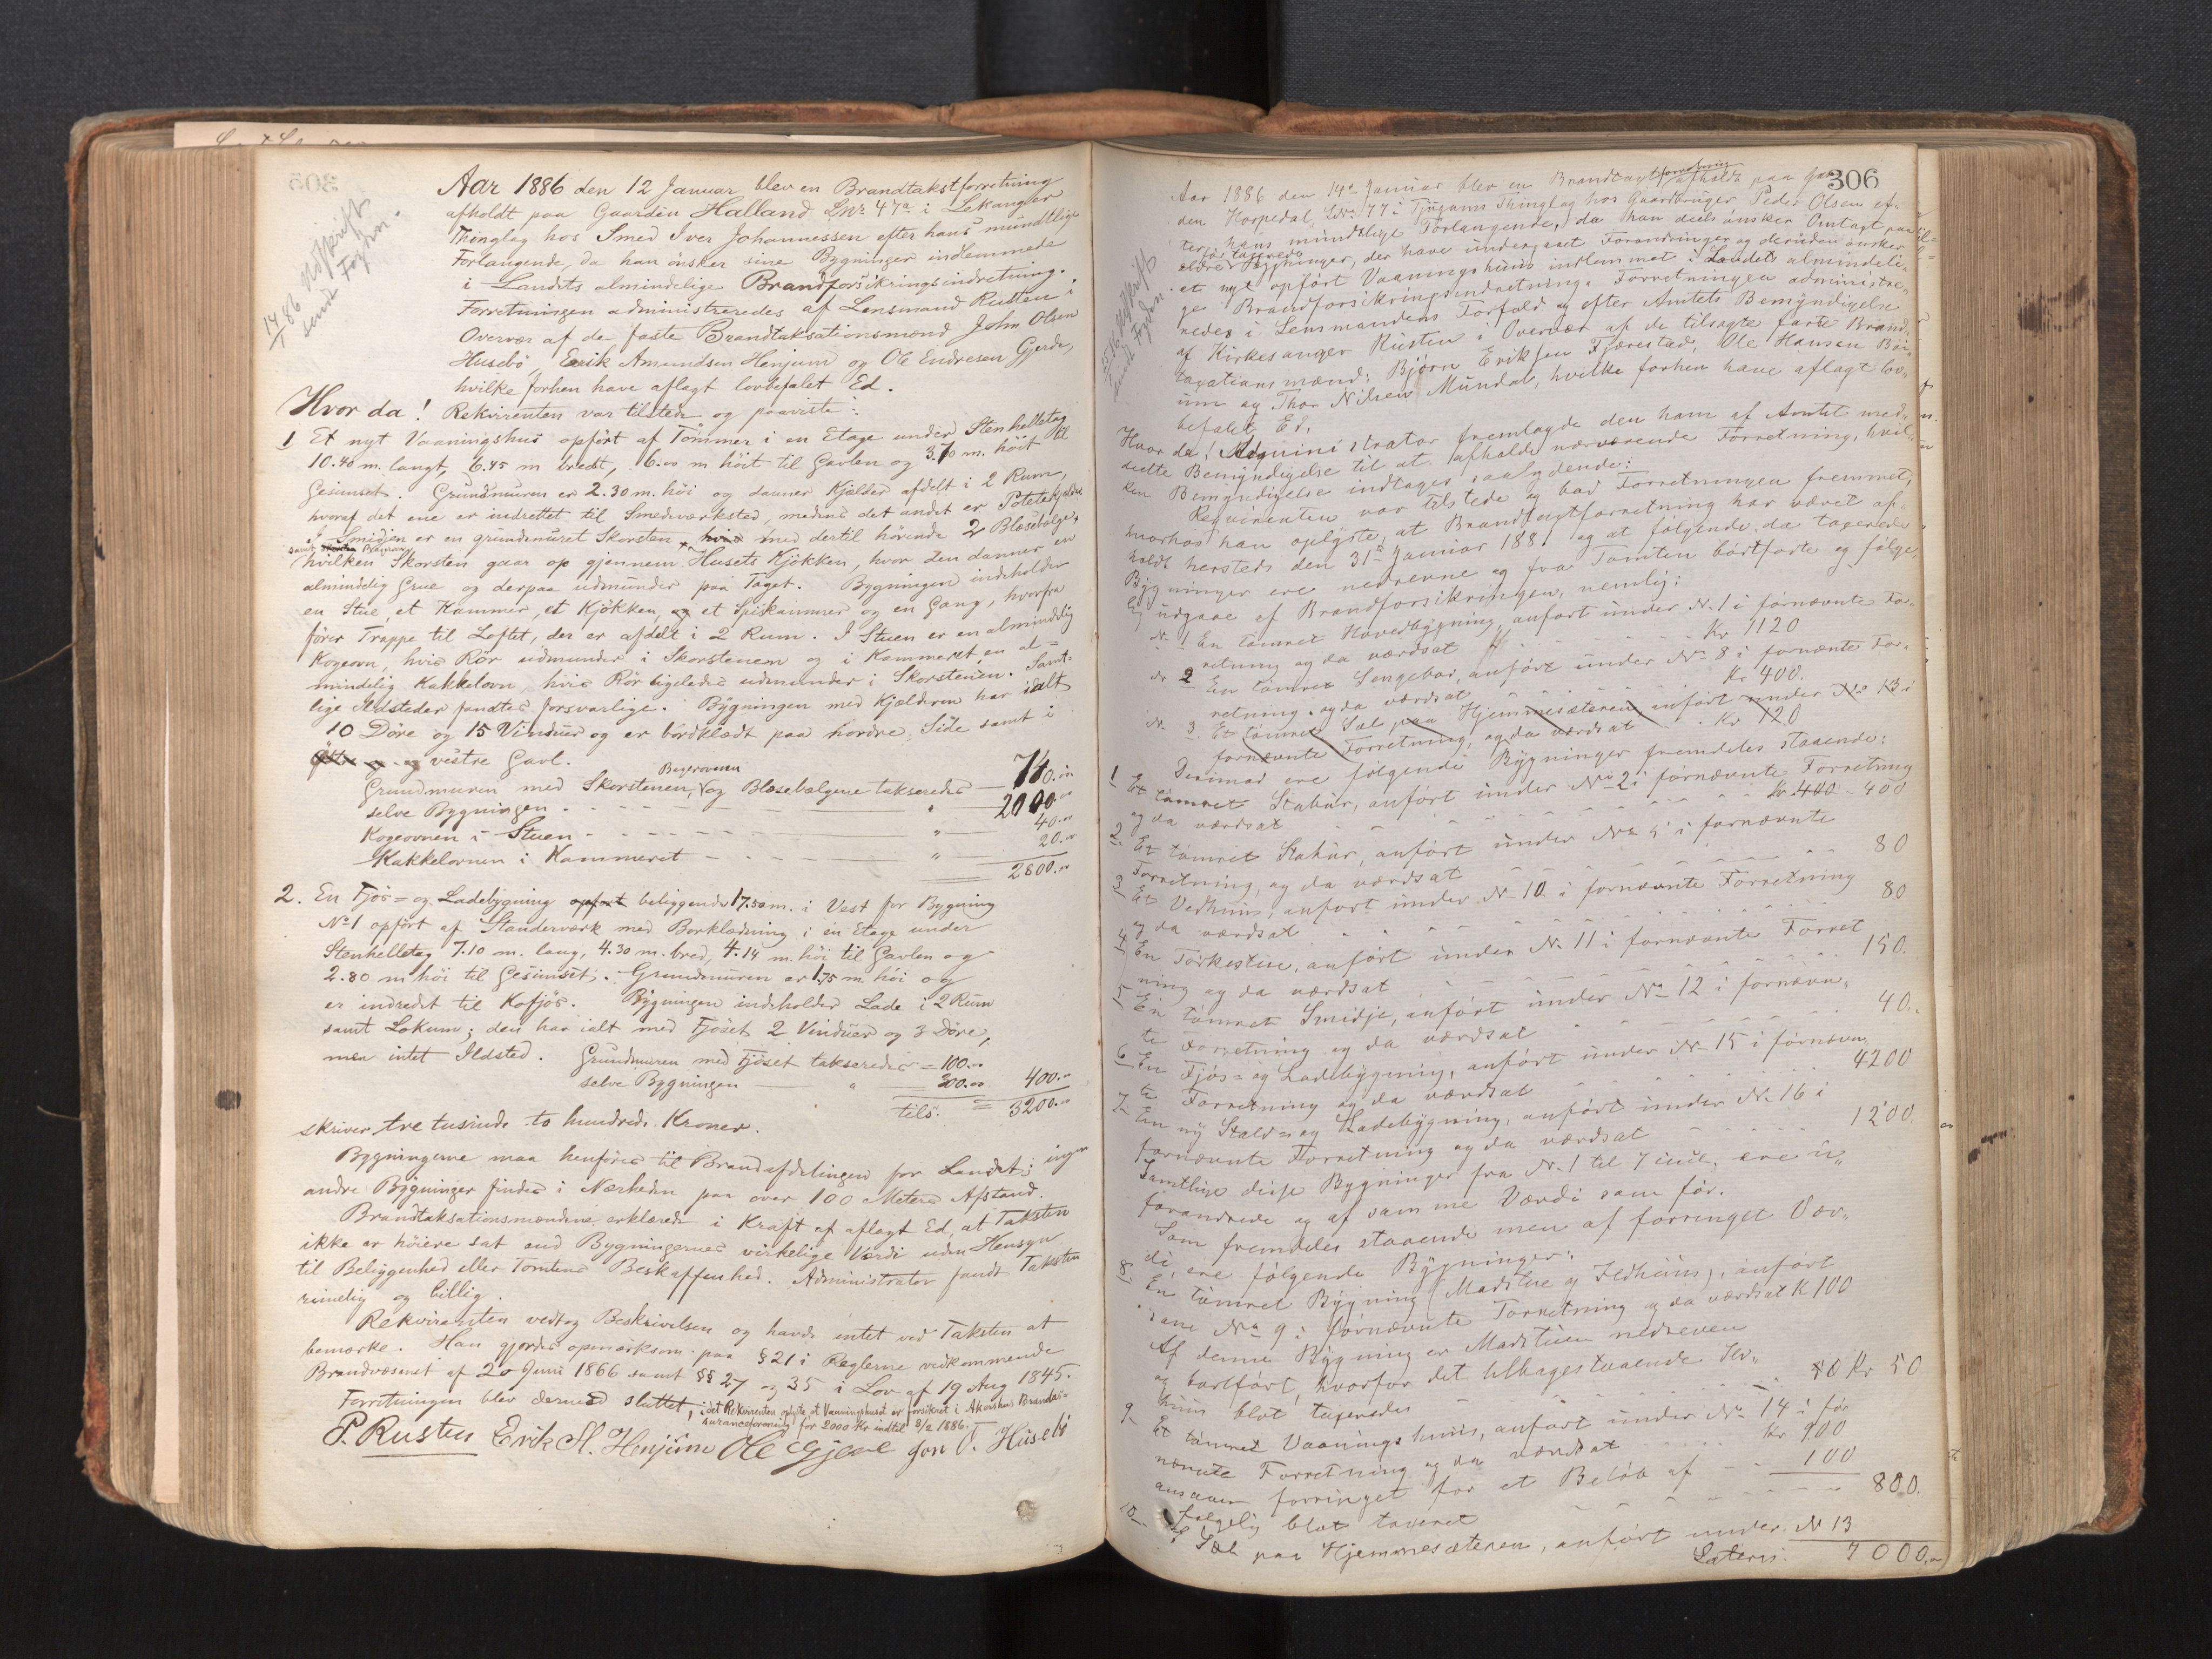 14/1 86 Udskrift
sendt Fogden.
Aar 1886 den 12 Januar blev en Brandtakstforretning
afholdt paa Gaarden Halland Lnr 47a i Lekanger
Thinglag hos Smed Iver Johannessen efter hans mundtlige
Forlangende, da han önsker sine Bygninger indlemmede
i Landets almindelige Brandforsikringsindretning.
Forretningen administreredes af Lensmand Rusten i
Overvær af de faste Brandtaksationsmænd John Olsen
Husebö, Erik Amundsen Henjum og Ole Endresen Gjerde,
hvilke forhen have aflagt lovbefalet Ed.
Hvor da! Rekvirenten var tilstede og paaviste:
1 Et nyt Vaaningshus opfört af Tömmer i en Etage under Stenhelletag
10.40 m. langt, 6.45 m bredt, 6.00 m höit til Gavlen og 3.70 m. höit til
Gesimset. Grundmuren er 2.30 m. höi og danner Kjælder afdelt i 2 Rum,
hvoraf det ene er indrettet til Smedværksted, medens det andet er Potetekjælder
I Smidjen er en grundmuret Skorsten, hvis med dertil hörende 2 Blæsebælge,
hvilken Skorsten gaar op gjennem Husets Kjökken, hvor den danner en
almindelig Grue og derpaa udmunder paa Taget. Bygningen indeholder
en Stue, et Kammer, et Kjökken, og et Spiskammer og en Gang, hvorfra
förer Trappe til Loftet, der er afdelt i 2 Rum. I Stuen er en almindelig
Kogeovn, hvis Rör udmunder i Skorstenen og i Kammeret en al=
mindelig Kakkelovn, hvis Rör ligeledes udmunder i Skorstenen. Samt-
lige Ildsteder fandtes forsvarlige. Bygningen med Kjælderen har ialt
10 Döre og 15 Vinduer og er bordklædt paa nordre Side samt i
östre og vestre Gavl.
Grundmuren med Skorstenen, og Blæsebælgene takseredes 740.00
selve Bygningen - - - " 2000.00
Kogeovnen i Stuen - - - " 40.00
Kakkelovnen i Kammeret - - - " 20.00
2800.00
2. En Fjös= og Ladebygning opfört beliggende 17.50 m. i Vest for Bygning
No 1 opfört af Standerværk med Borklædning i en Etage under
Stenhelletag 7.10 m. lang, 4.30 m. bred, 4.14 m. höi til Gavlen og
2.80 m höi til Gesimset. Grundmuren er 1.75 m. höi og
er indredet til Kofjös. Bygningen indeholder Lade i 2 Rum
samt Lokum; den har ialt med Fjöset 2 Vinduer og 3 Döre,
men intet Ildsted. Grundmuren med Fjöset takseredes = 100.00
selve Bygningen " 300.00 400.00
tils. = 3200.00
skriver tre tusinde to hundrede Kroner.
Bygningerne maa henföres til Brandafdelingen for Landet; ingen
andre Bygninger findes i Nærheden paa over 100 Meters Afstand.
Brandtaksationsmændene erklærede i Kraft af aflagt Ed, at Taksten
ikke er höiere sat end Bygningernes virkelige Værdi uden Hensyn
til Beliggenhed eller Tomtens Beskaffenhed. Administrator fandt Taksten
rimelig og billig.
Rekvirenten vedtog Beskrivelsen og havde intet ved Taksten at
bemærke. Han gjordes opmærksom paa § 21 i Reglerne vedkommende
Brandvæsenet af 20 Juni 1866 samt §§ 27 og 35 i Lov af 19 Aug 1845.
Forretningen blev dermed sluttet, idet Rekvirenten oplyste, at Vaaningshuset er forsikret i Akershus Brandas=
suranceforening for 2000 Kr indtil 8/2 1886.
P. Rusten Erik A. Henjum Ole Gjerde Jon O. Husebö
306
Aar 1886 den 14de Januar blev en Brandtagtforretning afholdt paa Gaar
den Horpedal Lnr. 77 i Tjugums Thinglag hos Gaardbruger Peder Olsen ef-
ter hans mundtlige Forlangende, da han dels önsker Omtagt paa
ældre Bygninger, der have undergaaet Forandringer og desuden önsker
et nyt opfört Vaaningshuus indlemmet i Landets almindeli-
ge Brandforsikringsindretning. Forretningen administre-
redes i Lensmandens Forfald og efter Amtets Bemyndigelse
af Kirkesanger Rusten i Overvær af de tilsagte faste Brand-
taxationsmænd: Björn Eriksen Fjærestad, Ole Hansen Böi-
um og Thor Nilsen Mundal, hvilke forhen have aflagt lov-
befalet Ed.
Hvor da! Administrator fremlagde den ham af Amtet med-
deelte Bemyndigelse til at afholde nærværende Forretning, hvil-
ken Bemyndigelse indtages saalydende:
Requirenten var tilstede og bad Forretningen fremmet,
hvorhos han oplyste, at Brandtagtforretning har været af-
holdt hersteds den 31te Januar 1881 og at fölgende da taxerede
Bygninger ere nedrevne og fra Tomten bortförte og fölge-
lig udgaae af Brandforsikringen, nemlig:
No 1 En tömret Hovedbygning, anfört under No. 1 i fornævnte For-
retning og da værdsat Kr 1120
No 2 En tömret Sengebod, anfört under No 8 i fornævnte For-
retning og da værdsat Kr 400.
No 3. Et tömret Sæl paa Hjemmesæteren, anfört under No 13 i
fornævnte Forretning, og da værdsat Kr 120
Derimod ere fölgende Bygninger fremdeles staaende:
1 Et tömret Stabur, anfört under No 2 i fornævnte Forretning
og da værdsat Kr 400 400
2. Et tömret Stabur, anfört under No 5 i fornævnte
Forretning, og da værdsat 80
3 Et Vedhuus, anfört under No 10 i fornævnte Forretning
og da værdsat 80
4 En Törkestue, anfört under No 11 i fornævnte Forret
ning og da værdsat 150.
5 En tömret Smidje, anfört under No 12 i fornævn-
te Forretning og da værdsat 40.
6 En Fjös= og Ladebygning, anfört under No 15 i fornævn
te Forretning og da værdsat 4200
7 En ny Stald= og Ladebygning, anfört under No. 16 i
fornævnte Forretning og da værdsat 1200.
Samtlige disse Bygninger fra No. 1 til 7 incl. ere u-
forandrede og af samme Værdi som för.
Som fremdeles staaende men af forringet Vær-
di, ere fölgende Bygninger:
8. En tömret Bygning (Madstue og Ildhuus), anfört
No 9 i fornævnte Forretning og da værdsat K 100
Af denne Bygning er Madstuen nedreven
og bortfört, hvorfor det tilbagestaaende Ild-
huus blot taxeredes Kr 50
9 Et tömret Vaaningshuus, anfört under No 14 i for
nævnte Forretning og da værdsat Kr 900
ansaaes forringet for et Belöb af 100
fölgelig blot taxeret 800.
10 Et Sæl paa Hjemmesæteren, anfört under No 13
Lateris. 7000.